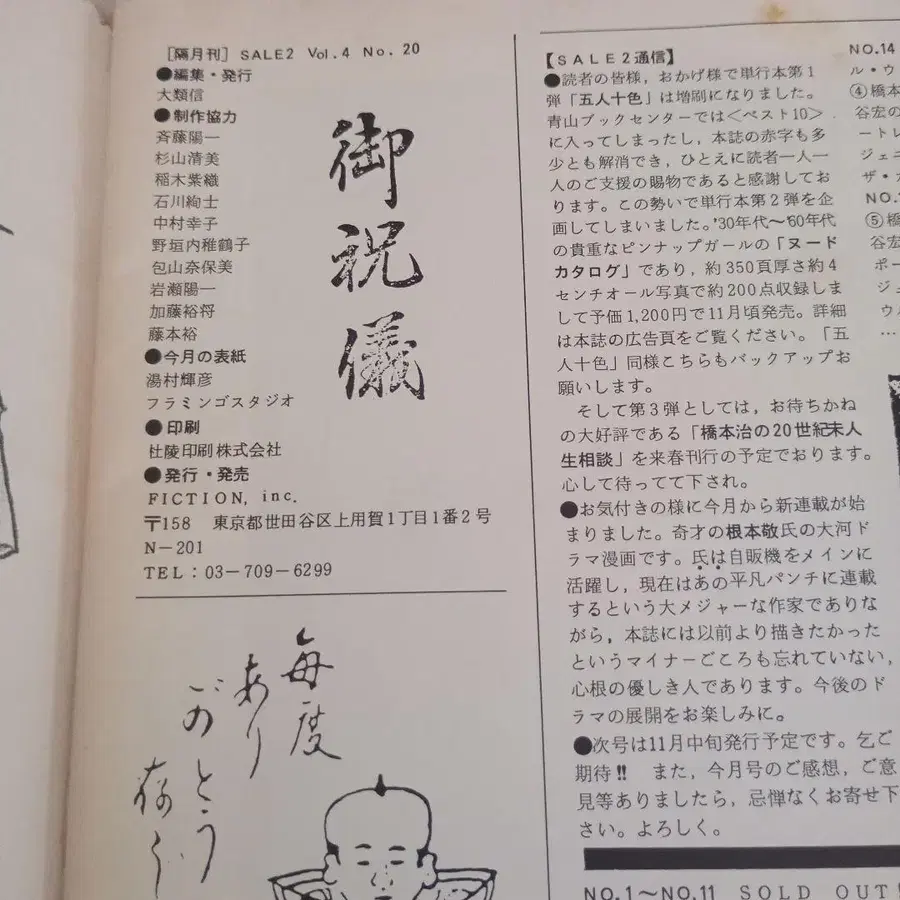 [隔月刊] SALE2 Vol.4 No.20
●編集・発行
大類信
●制作協力
斉藤陽一
杉山清美
稲木紫織
石川絢士
中村幸子
野垣内稚鶴子
包山奈保美
岩瀬陽一
加藤裕将
藤本裕
●今月の表紙
湯村輝彦
フラミンゴスタジオ
●印刷
杜陵印刷株式会社
●発行・発売
FICTION, inc.
〒158 東京都世田谷区上用賀1丁目1番2号
N-201
TEL:03-709-6299
御祝儀
毎度
あり
がとう
【SALE2通信】
●読者の皆様，おかげ様で単行本第1
弾「五人十色」は増刷になりました。
青山ブックセンターでは＜ベスト10＞
に入ってしまったし，本誌の赤字も多
少とも解消でき，ひとえに読者一人一
人のご支援の賜物であると感謝してお
ります。この勢いで単行本第2弾を企
画してしまいました。'30年代〜'60年代
の貴重なピンナップガールの「ヌード
カタログ」であり，約350頁厚さ約4
センチオール写真で約200点収録しま
して予価1,200円で11月頃発売。詳細
は本誌の広告頁をご覧ください。「五
人十色」同様こちらもバックアップお
願いします。
そして第3弾としては，お待ちかね
の大好評である「橋本治の20世紀未人
生相談」を来春刊行の予定でおります。
心して待ってて下され。
●お気付きの様に今月から新連載が始
まりました。奇才の根本敬氏の大河ド
ラマ漫画です。氏は自販機をメインに
活躍し，現在はあの平凡パンチに連載
するという大メジャーな作家でありな
がら，本誌には以前より描きたかった
というマイナーごころも忘れていない，
心根の優しき人であります。今後のド
ラマの展開をお楽しみに。
●次号は11月中旬発行予定です。乞ご
期待!! また，今月号のご感想，ご意
見等ありましたら，忌憚なくお寄せ下
さい。よろしく。
NO.1〜NO.11 SOLD OUT!
NO.14
ル・ウ
④橋本
谷宏の
ートレ
ジェニ
ザ・
NO.
⑤橋
谷宏
ポー
ジュ
ウル
…